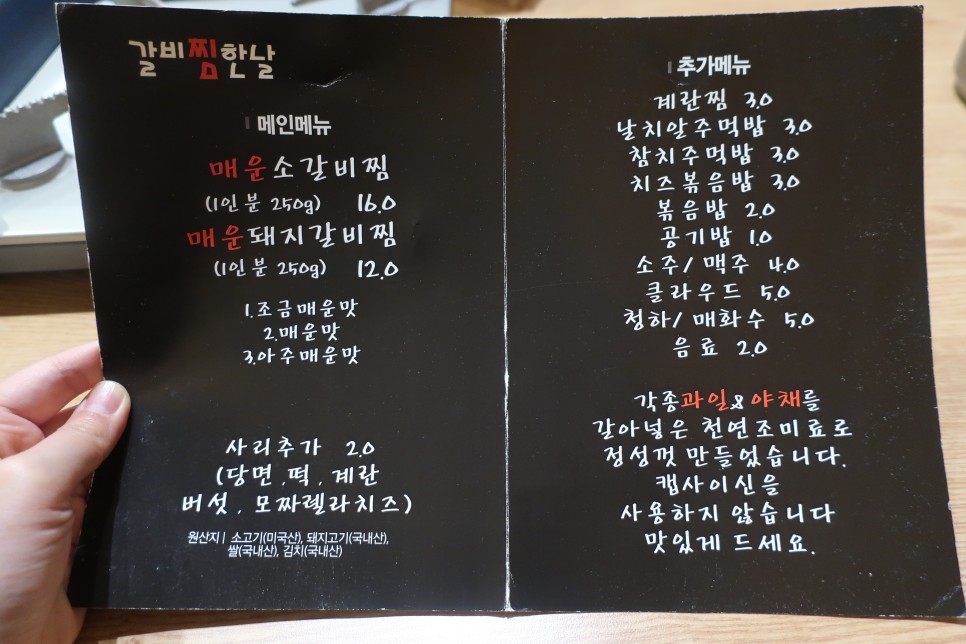 갈비찜한날
메인메뉴
매운소갈비찜
(1인분 250g) 16.0
매운돼지갈비찜
(1인분 250g) 12.0
1.조금매운맛
2.매운맛
3.아주매운맛
사리추가 2.0
(당면,떡,계란
버섯,모짜렐라치즈)
원산지 | 소고기(미국산), 돼지고기(국내산),
쌀(국내산), 김치(국내산)
추가메뉴
계란찜 3.0
날치알주먹밥 3.0
참치주먹밥 3.0
치즈볶음밥 3.0
볶음밥 2.0
공기밥 1.0
소주/맥주 4.0
클라우드 5.0
청하/매화수 5.0
음료 2.0
각종과일&야채를
갈아넣은 천연조미료로
정성껏 만들었습니다.
캡사이신을
사용하지 않습니다
맛있게 드세요.